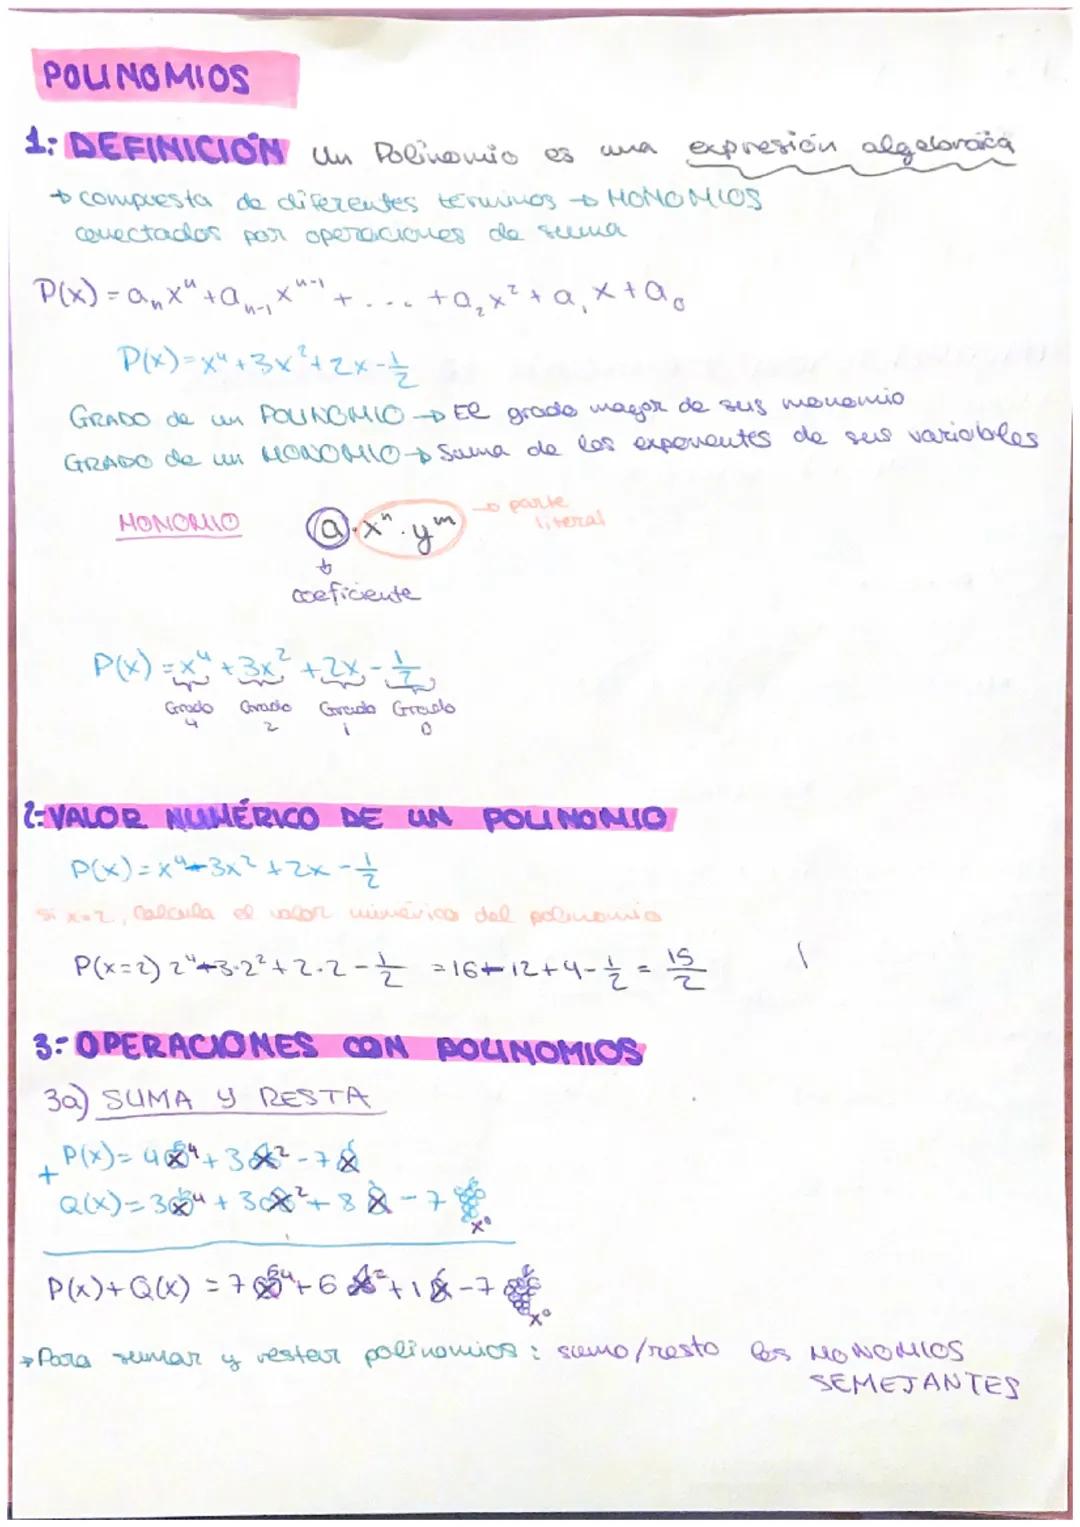 POLINOMIOS
1: DEFINICIÓN Un Polinomio es una expresión algebraica
→ compuesta de diferentes términos → MONOMIOS
conectados por operaciones de suma
P(x) = aₙxⁿ + aₙ₋₁xⁿ⁻¹ + ... + a₂x² + a₁x + a₀
P(x) = x⁴ + 3x² + 2x - 1/2
GRADO de un POLINOMIO → El grado mayor de sus monomio
GRADO de un MONOMIO → Suma de los exponentes de sus variables
MONOMIO a · xⁿ · yᵐ → parte literal
↓
coeficiente
P(x) = x⁴ + 3x² + 2x - 1/2
Grado 4 Grado 2 Grado 1 Grado 0
2: VALOR NUMÉRICO DE UN POLINOMIO
P(x) = x⁴ - 3x² + 2x - 1/2
Si x=2, calcula el valor numérico del polinomio
P(x=2) 2⁴ - 3·2² + 2·2 - 1/2 = 16 - 12 + 4 - 1/2 = 15/2
3: OPERACIONES CON POLINOMIOS
3a) SUMA y RESTA
P(x) = 4x⁴ + 3x² - 7x
+
Q(x) = 3x⁴ + 3x² + 8x - 7 x⁰
P(x) + Q(x) = 7x⁴ + 6x² + 1x - 7 x⁰
→ Para sumar y restar polinomios: sumo/resto los MONOMIOS
SEMEJANTES